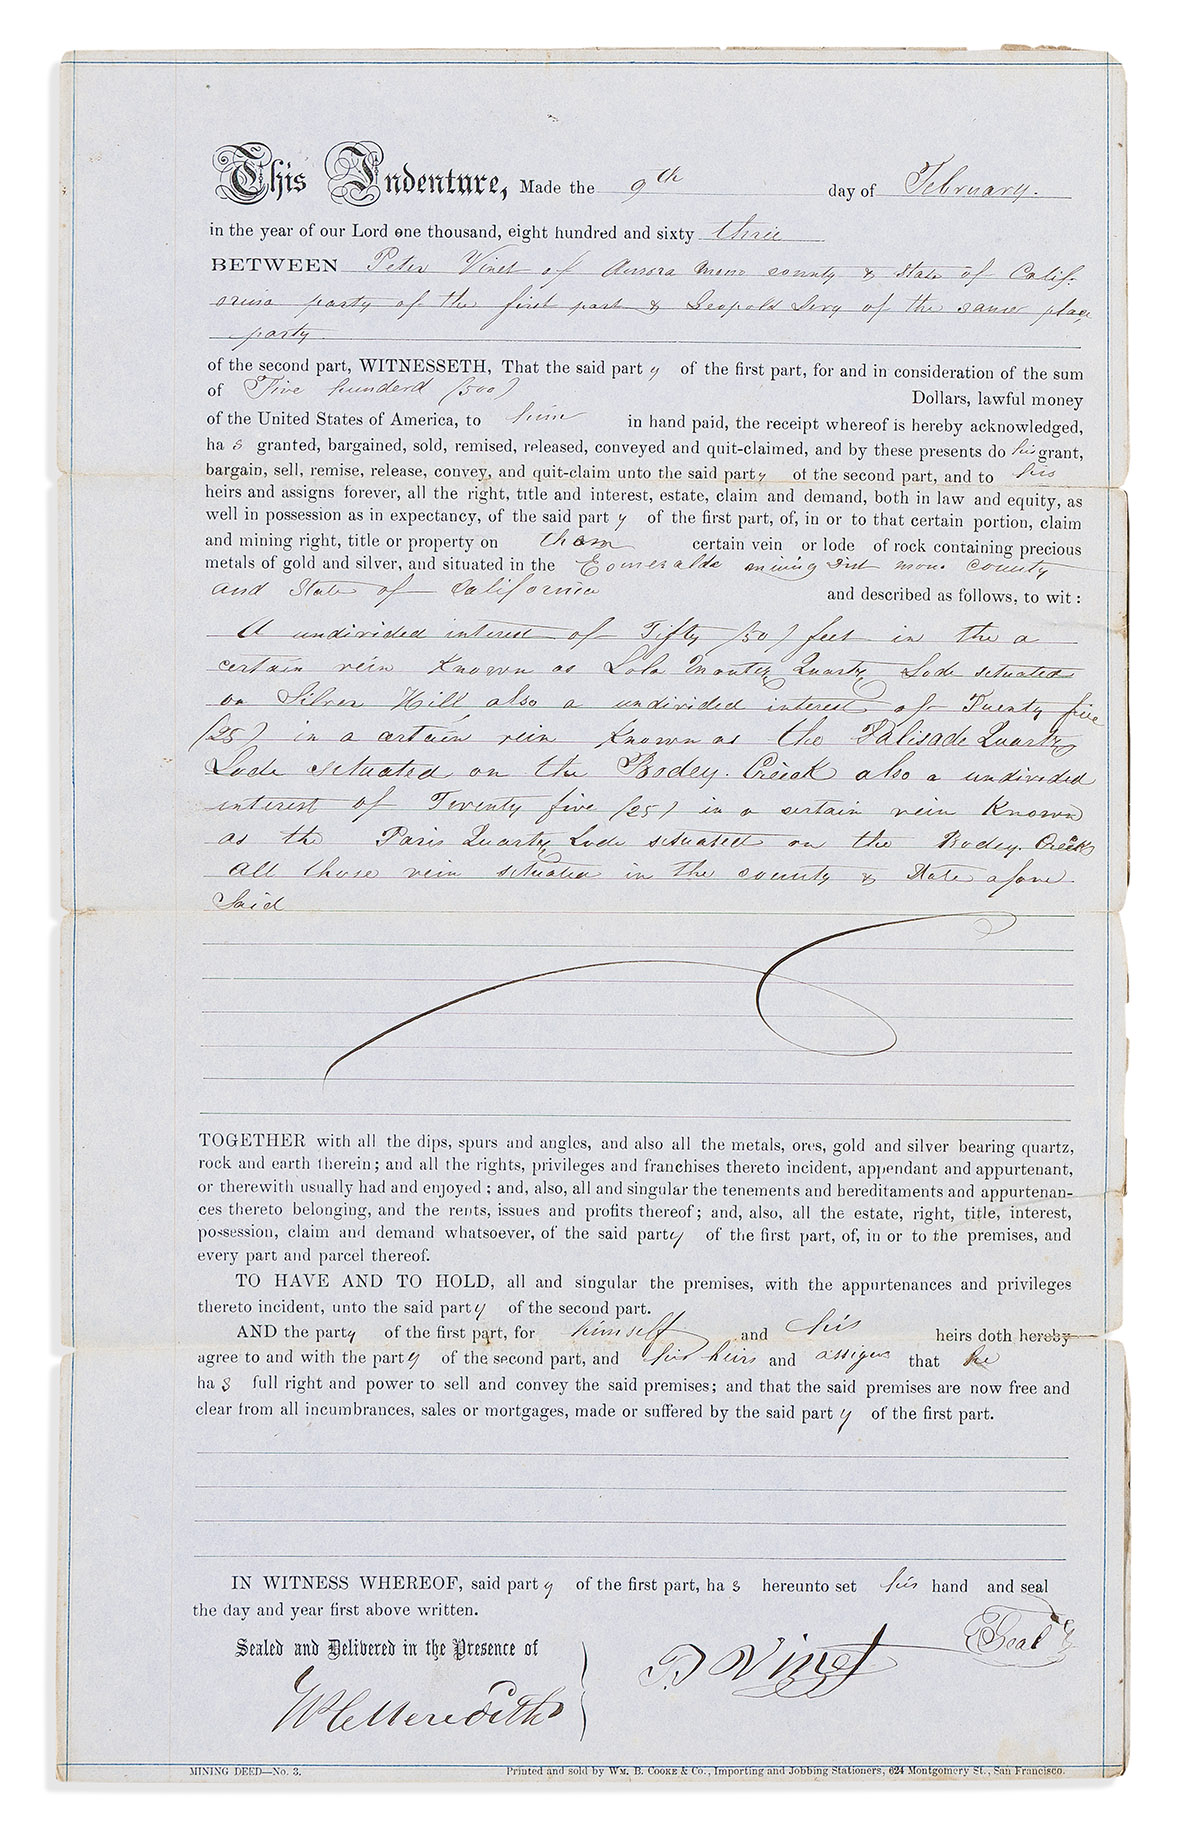 This Indenture, Made the 9th day of February.
in the year of our Lord one thousand, eight hundred and sixty three
BETWEEN Peter Vinet of Aurora Mono county & State of Calif-
ornia party of the first part & Leopold Levy of the same place
party
of the second part, WITNESSETH, That the said party of the first part, for and in consideration of the sum
of Five hunderd (500) Dollars, lawful money
of the United States of America, to him in hand paid, the receipt whereof is hereby acknowledged,
has granted, bargained, sold, remised, released, conveyed and quit-claimed, and by these presents do his grant,
bargain, sell, remise, release, convey, and quit-claim unto the said party of the second part, and to his
heirs and assigns forever, all the right, title and interest, estate, claim and demand, both in law and equity, as
well in possession as in expectancy, of the said party of the first part, of, in or to that certain portion, claim
and mining right, title or property on certain vein or lode of rock containing precious
metals of gold and silver, and situated in the Esmeralda mining Dist mono county
and State of California and described as follows, to wit:
A undivided interest of Fifty (50) feet in the a
certain vein Known as Lola Montez Quartz Lode situated
on Silver Hill also a undivided interest of Twenty five
(25) in a certain vein Known as the Palisade Quartz
Lode situated on the Bodey. Creeck also a undivided
interest of Twenty five (25) in a certain vein Known
as the Paris Quartz Lode situated on the Bodey. Creek
all those vein situated in the county & State afore
Said
TOGETHER with all the dips, spurs and angles, and also all the metals, ores, gold and silver bearing quartz,
rock and earth therein; and all the rights, privileges and franchises thereto incident, appendant and appurtenant,
or therewith usually had and enjoyed; and, also, all and singular the tenements and hereditaments and appurtenan-
ces thereto belonging, and the rents, issues and profits thereof; and, also, all the estate, right, title, interest,
possession, claim and demand whatsoever, of the said party of the first part, of, in or to the premises, and
every part and parcel thereof.
TO HAVE AND TO HOLD, all and singular the premises, with the appurtenances and privileges
thereto incident, unto the said party of the second part.
AND the party of the first part, for himself and his heirs doth hereby
agree to and with the party of the second part, and his heirs and assigns that he
has full right and power to sell and convey the said premises; and that the said premises are now free and
clear from all incumbrances, sales or mortgages, made or suffered by the said party of the first part.
IN WITNESS WHEREOF, said party of the first part, has hereunto set his hand and seal
the day and year first above written.
Sealed and Delivered in the Presence of
P Vinet Seal
W C Meredith
MINING DEED—No. 3. Printed and sold by WM. B. COOKE & Co., Importing and Jobbing Stationers, 624 Montgomery St., San Francisco.